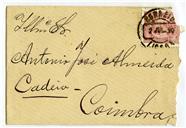 Illmo Sr.
Antonio José Almeida
Cadeia
Coimbra